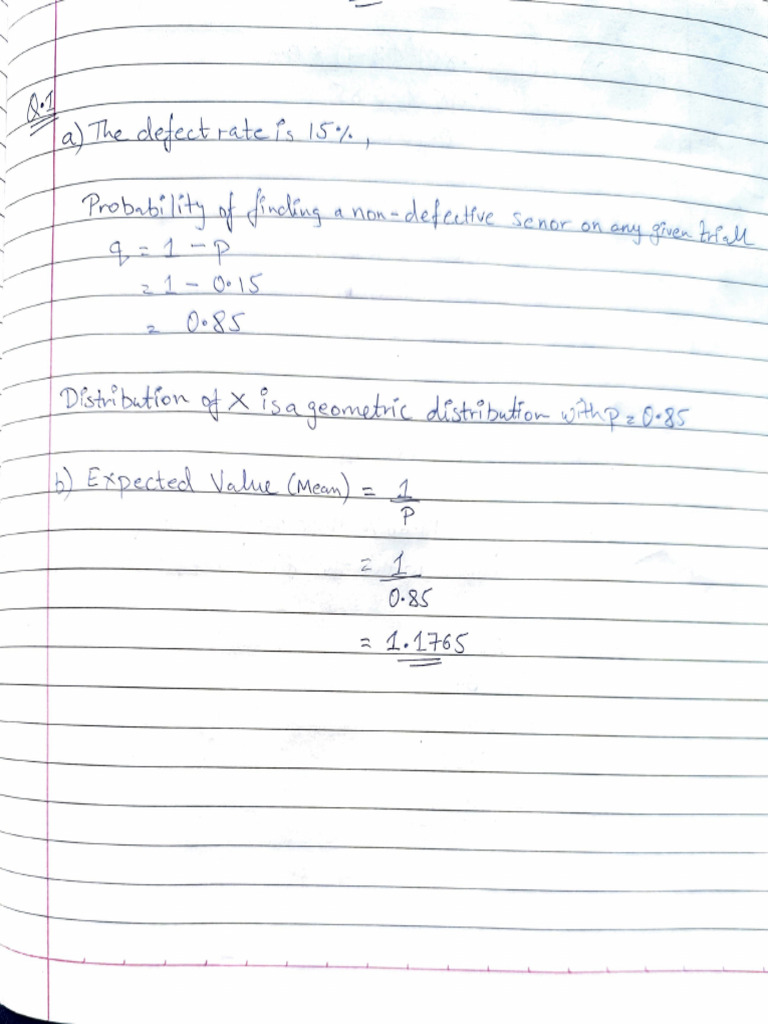 Q.1
a) The defect rate is 15%,
Probability of finding a non-defective senor on any given triall
q = 1 - p
= 1 - 0.15
= 0.85
Distribution of X is a geometric distribution with p = 0.85
b) Expected Value (Mean) = 1
P
= 1
0.85
= 1.1765